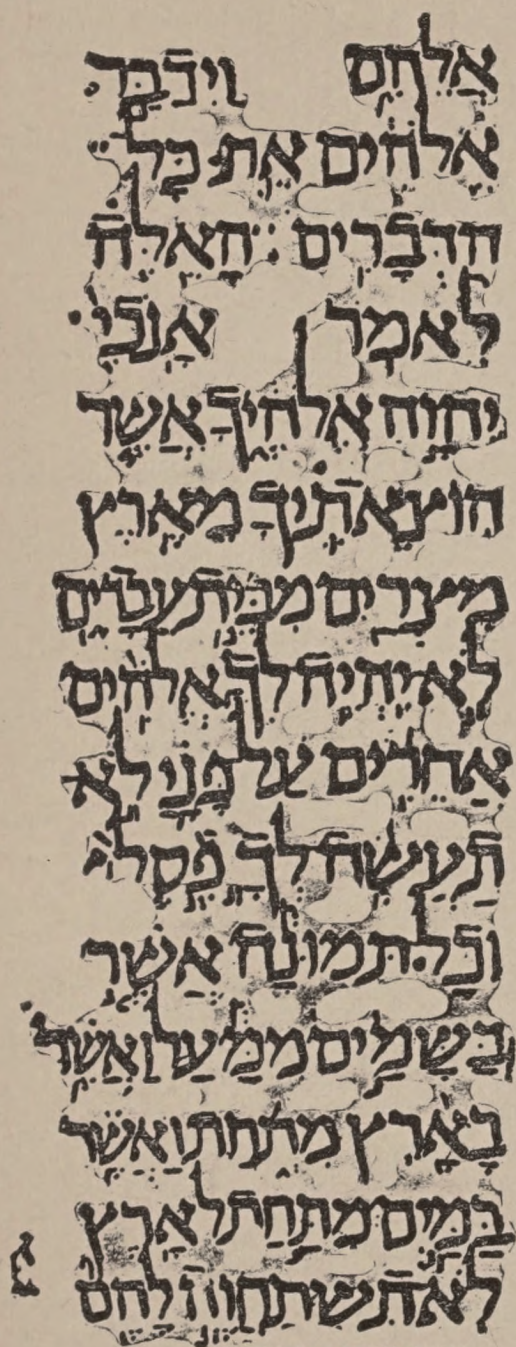 אֲלֵהֶם וַיְדַבֵּר
אֱלֹהִים אֵת כָּל
הַדְּבָרִים הָאֵלֶּה
לֵאמֹר אָנֹכִי
יְהוָה אֱלֹהֶיךָ אֲשֶׁר
הוֹצֵאתִיךָ מֵאֶרֶץ
מִצְרַיִם מִבֵּית עֲבָדִים
לֹא יִהְיֶה לְךָ אֱלֹהִים
אֲחֵרִים עַל פָּנָי לֹא
תַעֲשֶׂה לְךָ פֶסֶל
וְכָל תְּמוּנָה אֲשֶׁר
בַּשָּׁמַיִם מִמַּעַל וַאֲשֶׁר
בָּאָרֶץ מִתַּחַת וַאֲשֶׁר
בַּמַּיִם מִתַּחַת לָאָרֶץ
לֹא תִשְׁתַּחֲוֶה לָהֶם